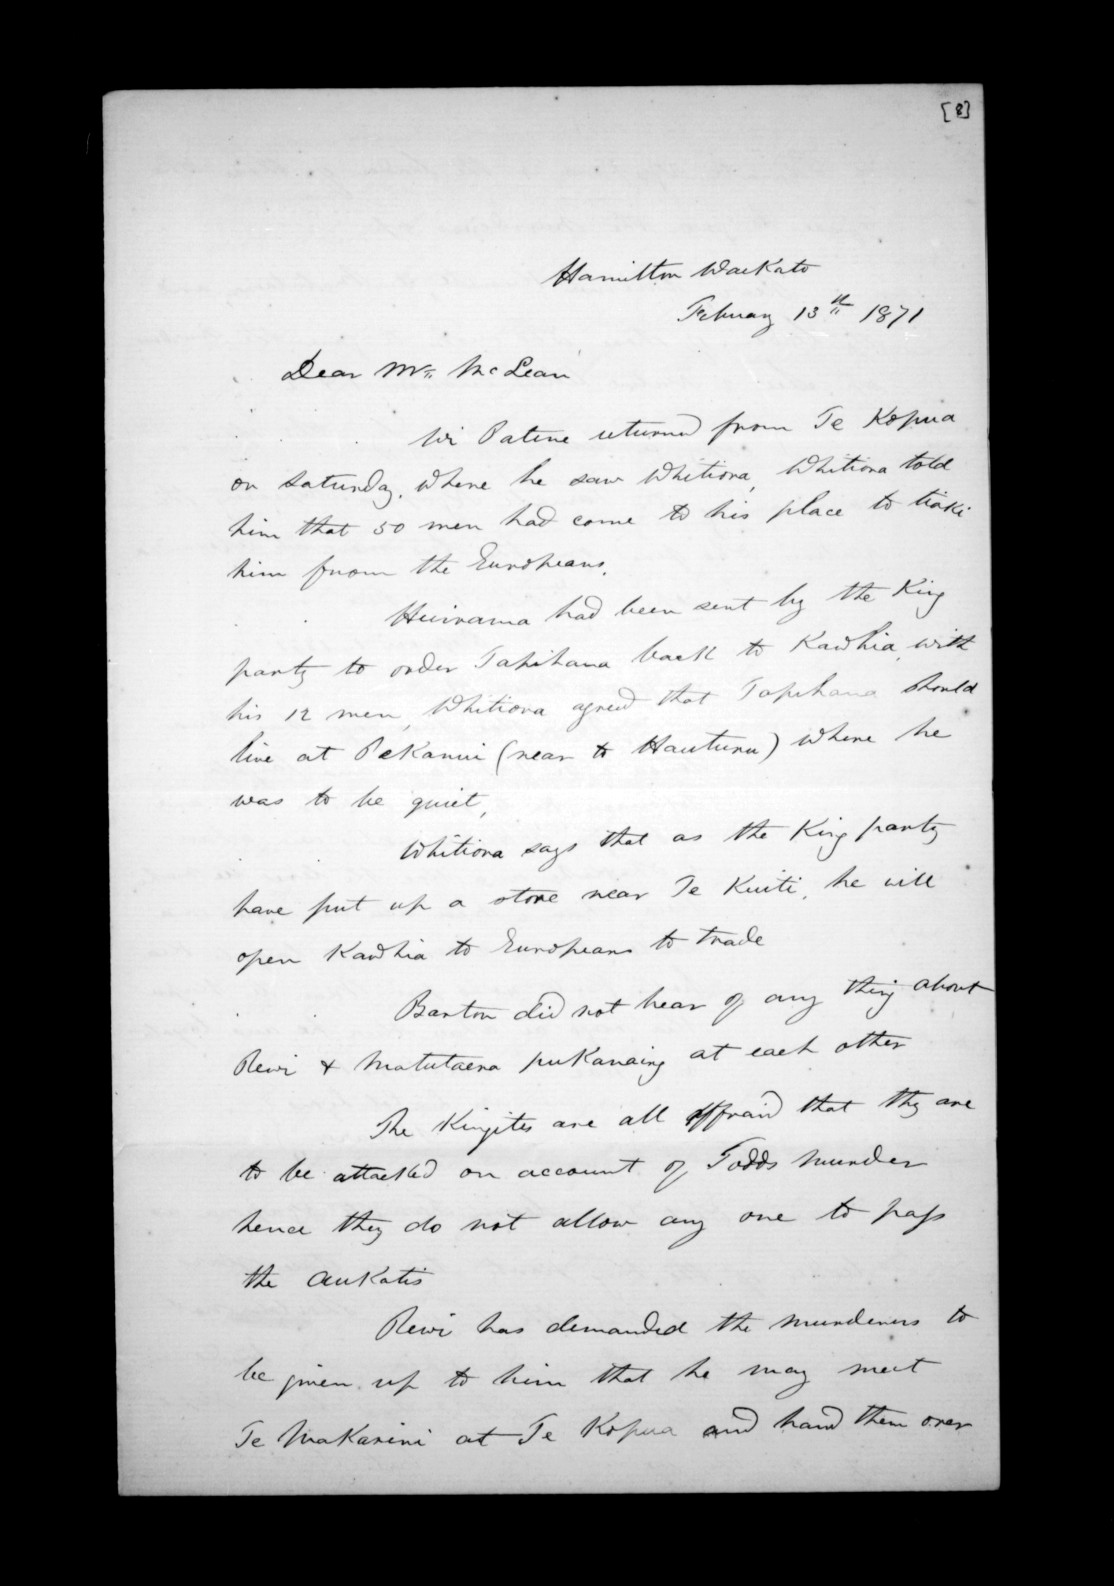 [8]
Hamilton Waikato
Februay 13th 1871
Dear Mr. McLean
Wi Patene returned from Te Kopua
on Saturday, where he saw Whitiora, Whitiora told
him that 50 men had come to his place to tiaki
him from the Europeans.
Huirama had been sent by the King
party to order Tapihana back to Kawhia, with
his 12 men, Whitiora agreed that Tapihana should
live at Pekanui (near to Hauturu) where he
was to be quiet,
Whitiora says that as the King party
have put up a store near Te Kuiti, he will
open Kawhia to Europeans to trade
Barton did not hear of any thing about
Rewi & Matutaera pukanaing at each other
The Kingites are all affraid that they are
to be attacked on account of Todds murder
hence they do not allow any one to pass
the aukatis
Rewi has demanded the murderers to
be given up to him that he may meet
Te Makarini at Te Kopua and hand them over